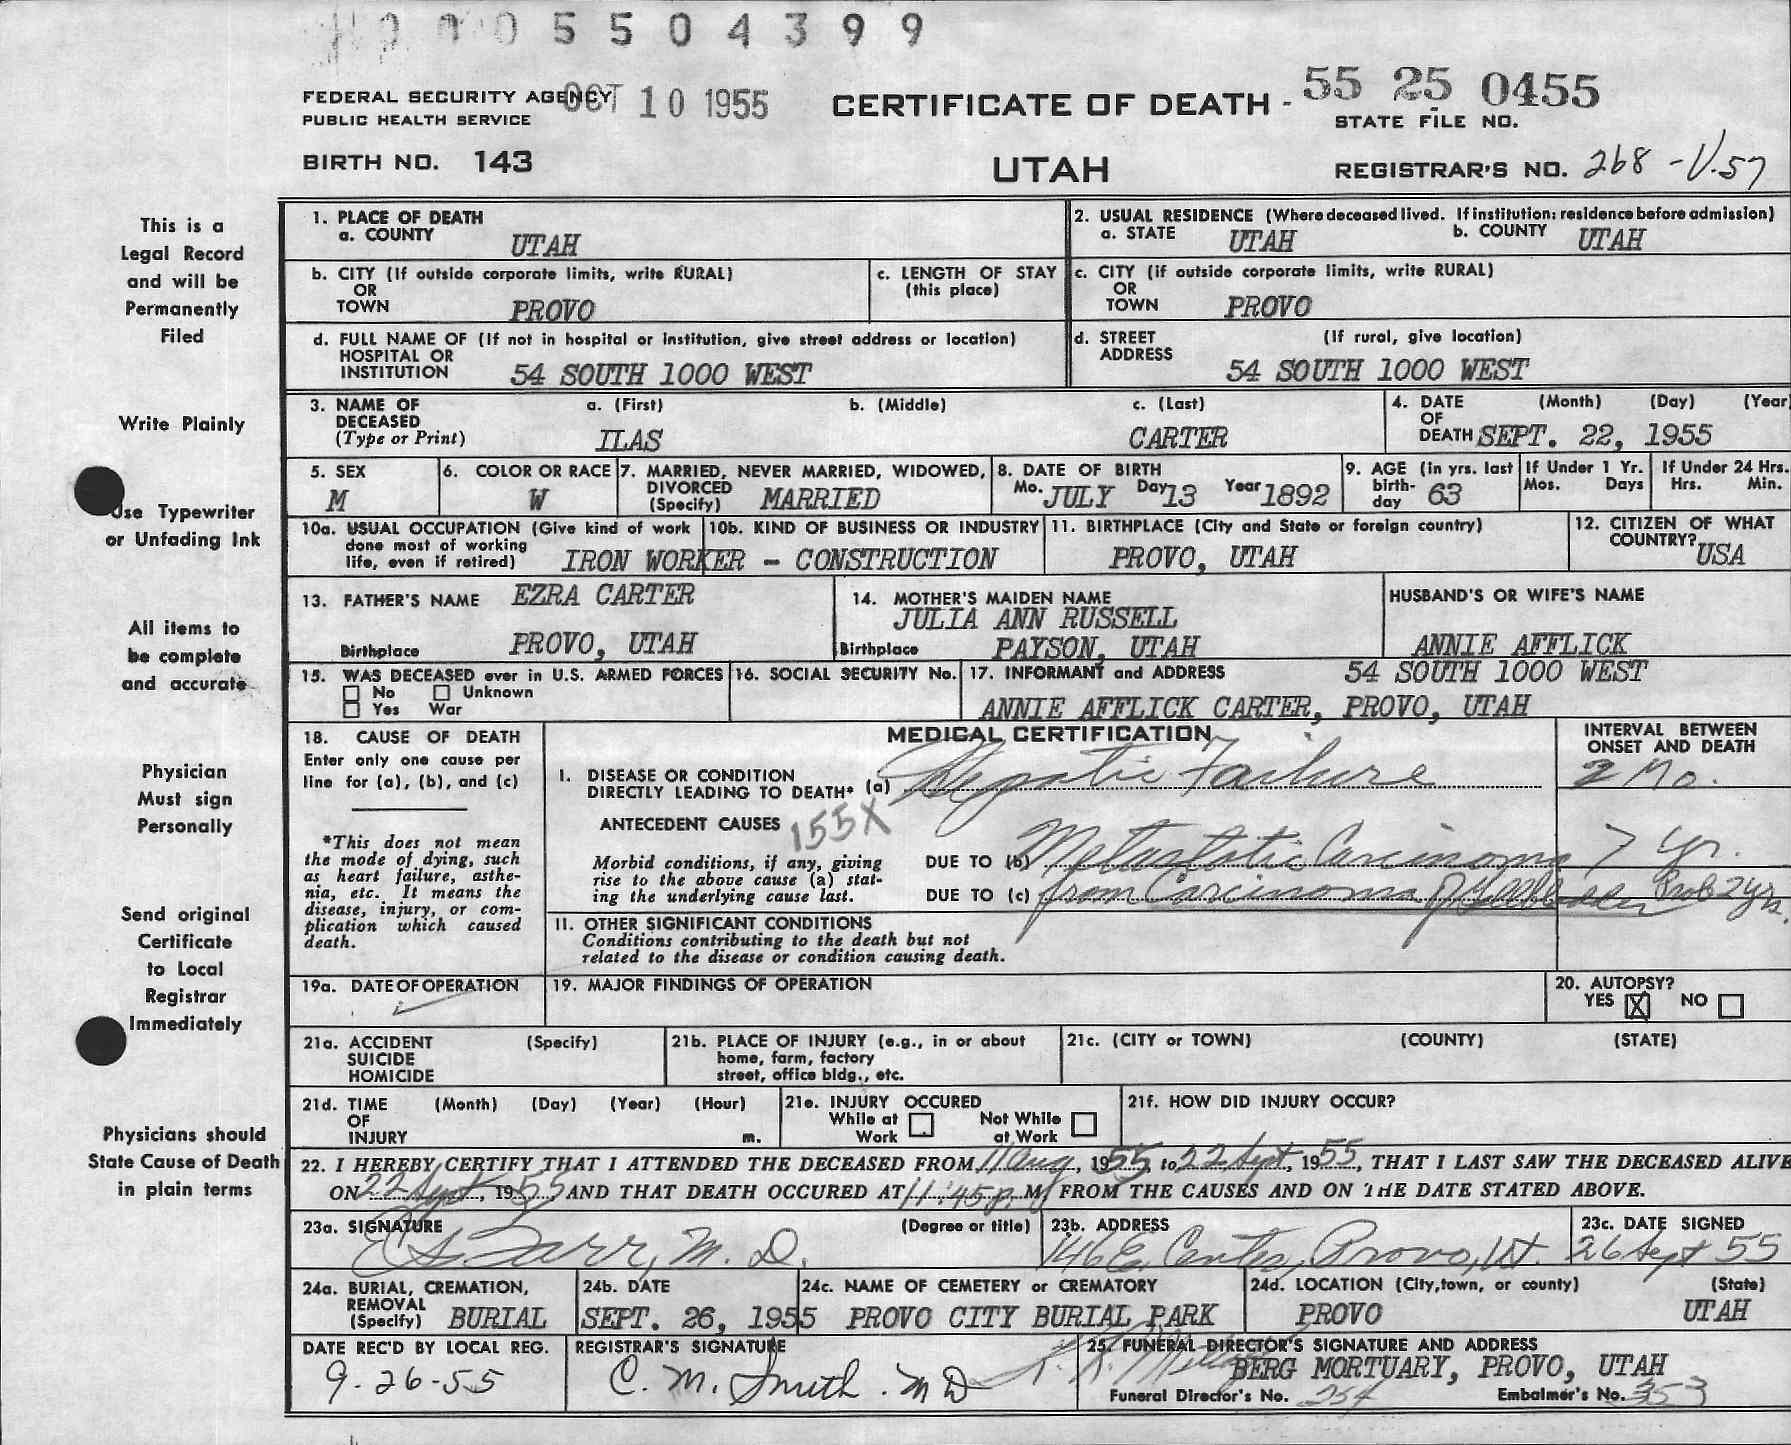 0 0 0 5 5 0 4 3 9 9
FEDERAL SECURITY AGENCY
PUBLIC HEALTH SERVICE
OCT 10 1955
CERTIFICATE OF DEATH - 55 25 0455
STATE FILE NO.
BIRTH NO. 143
UTAH
REGISTRAR'S NO. 268 - V.57
This is a
Legal Record
and will be
Permanently
Filed
Write Plainly
Use Typewriter
or Unfading Ink
All items to
be complete
and accurate
Physician
Must sign
Personally
Send original
Certificate
to Local
Registrar
Immediately
Physicians should
State Cause of Death
in plain terms
1. PLACE OF DEATH
a. COUNTY UTAH
2. USUAL RESIDENCE (Where deceased lived. If institution: residence before admission)
a. STATE UTAH b. COUNTY UTAH
b. CITY (If outside corporate limits, write RURAL)
OR
TOWN PROVO
c. LENGTH OF STAY
(this place)
c. CITY (if outside corporate limits, write RURAL)
OR
TOWN PROVO
d. FULL NAME OF (If not in hospital or institution, give street address or location)
HOSPITAL OR
INSTITUTION 54 SOUTH 1000 WEST
d. STREET (If rural, give location)
ADDRESS 54 SOUTH 1000 WEST
3. NAME OF a. (First) b. (Middle) c. (Last)
DECEASED
(Type or Print) ILAS CARTER
4. DATE (Month) (Day) (Year
OF
DEATH SEPT. 22, 1955
5. SEX
M
6. COLOR OR RACE
W
7. MARRIED, NEVER MARRIED, WIDOWED,
DIVORCED
(Specify) MARRIED
8. DATE OF BIRTH
Mo. JULY Day 13 Year 1892
9. AGE (in yrs. last
birth-
day 63
If Under 1 Yr.
Mos. Days
If Under 24 Hrs.
Hrs. Min.
10a. USUAL OCCUPATION (Give kind of work
done most of working
life, even if retired)
10b. KIND OF BUSINESS OR INDUSTRY
IRON WORKER - CONSTRUCTION
11. BIRTHPLACE (City and State or foreign country)
PROVO, UTAH
12. CITIZEN OF WHAT
COUNTRY? USA
13. FATHER'S NAME EZRA CARTER
Birthplace PROVO, UTAH
14. MOTHER'S MAIDEN NAME
JULIA ANN RUSSELL
Birthplace PAYSON, UTAH
HUSBAND'S OR WIFE'S NAME
ANNIE AFFLICK
15. WAS DECEASED ever in U.S. ARMED FORCES
No Unknown
Yes War
16. SOCIAL SECURITY No.
17. INFORMANT and ADDRESS 54 SOUTH 1000 WEST
ANNIE AFFLICK CARTER, PROVO, UTAH
18. CAUSE OF DEATH
Enter only one cause per
line for (a), (b), and (c)
*This does not mean
the mode of dying, such
as heart failure, asthe-
nia, etc. It means the
disease, injury, or com-
plication which caused
death.
MEDICAL CERTIFICATION
INTERVAL BETWEEN
ONSET AND DEATH
I. DISEASE OR CONDITION
DIRECTLY LEADING TO DEATH* (a) Hepatic Failure 2 Mo.
ANTECEDENT CAUSES 155X
Morbid conditions, if any, giving
rise to the above cause (a) stat-
ing the underlying cause last.
DUE TO (b) Metastatic Carcinoma 7 yr.
DUE TO (c) from Carcinoma of Gallbladder Prob 2 yrs.
II. OTHER SIGNIFICANT CONDITIONS
Conditions contributing to the death but not
related to the disease or condition causing death.
19a. DATE OF OPERATION
19. MAJOR FINDINGS OF OPERATION
20. AUTOPSY?
YES X NO
21a. ACCIDENT (Specify)
SUICIDE
HOMICIDE
21b. PLACE OF INJURY (e.g., in or about
home, farm, factory
street, office bldg., etc.
21c. (CITY or TOWN) (COUNTY) (STATE)
21d. TIME (Month) (Day) (Year) (Hour)
OF
INJURY m.
21e. INJURY OCCURED
While at Not While
Work at Work
21f. HOW DID INJURY OCCUR?
22. I HEREBY CERTIFY THAT I ATTENDED THE DECEASED FROM 11 Aug, 1955, to 22 Sept, 1955, THAT I LAST SAW THE DECEASED ALIVE
ON 22 Sept, 1955 AND THAT DEATH OCCURED AT 11:45 p. M, FROM THE CAUSES AND ON THE DATE STATED ABOVE.
23a. SIGNATURE (Degree or title)
M. D.
23b. ADDRESS
146 E. Center, Provo, Ut.
23c. DATE SIGNED
26 Sept 55
24a. BURIAL, CREMATION,
REMOVAL
(Specify) BURIAL
24b. DATE
SEPT. 26, 1955
24c. NAME OF CEMETERY or CREMATORY
PROVO CITY BURIAL PARK
24d. LOCATION (City, town, or county) (State)
PROVO UTAH
DATE REC'D BY LOCAL REG.
9-26-55
REGISTRAR'S SIGNATURE
C. M. Smith. MD
25. FUNERAL DIRECTOR'S SIGNATURE AND ADDRESS
BERG MORTUARY, PROVO, UTAH
Funeral Director's No. 254 Embalmer's No. 353